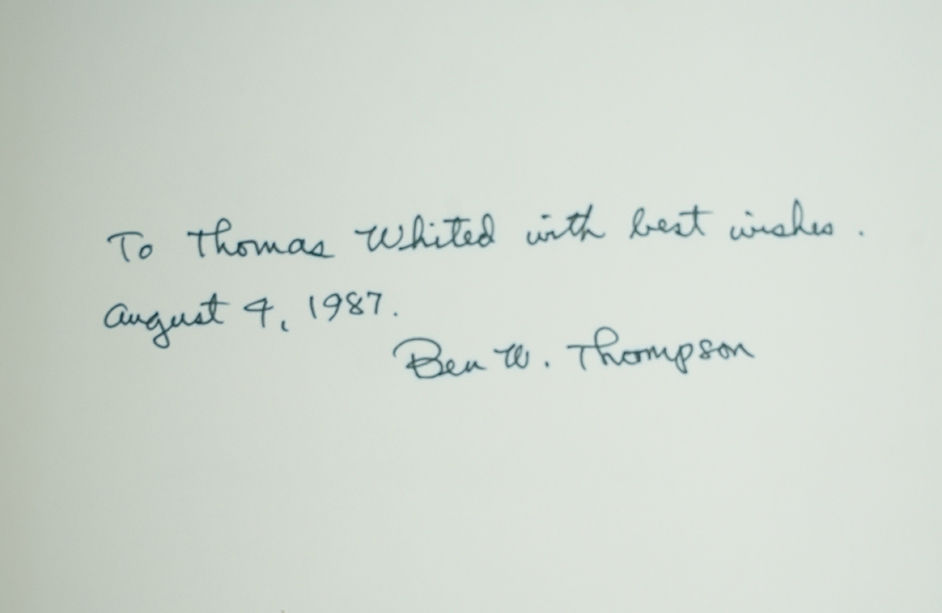 To Thomas Whited with best wishes.
August 4, 1987.
Ben W. Thompson